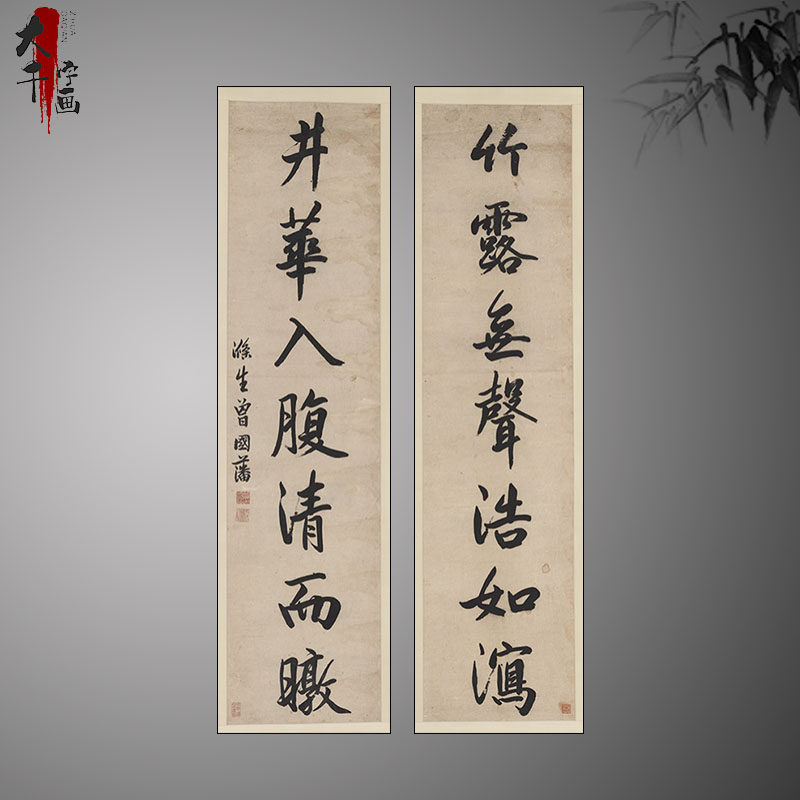 大千
字画
竹露無聲浩如瀉
井華入腹清而暾
滌生曾國藩